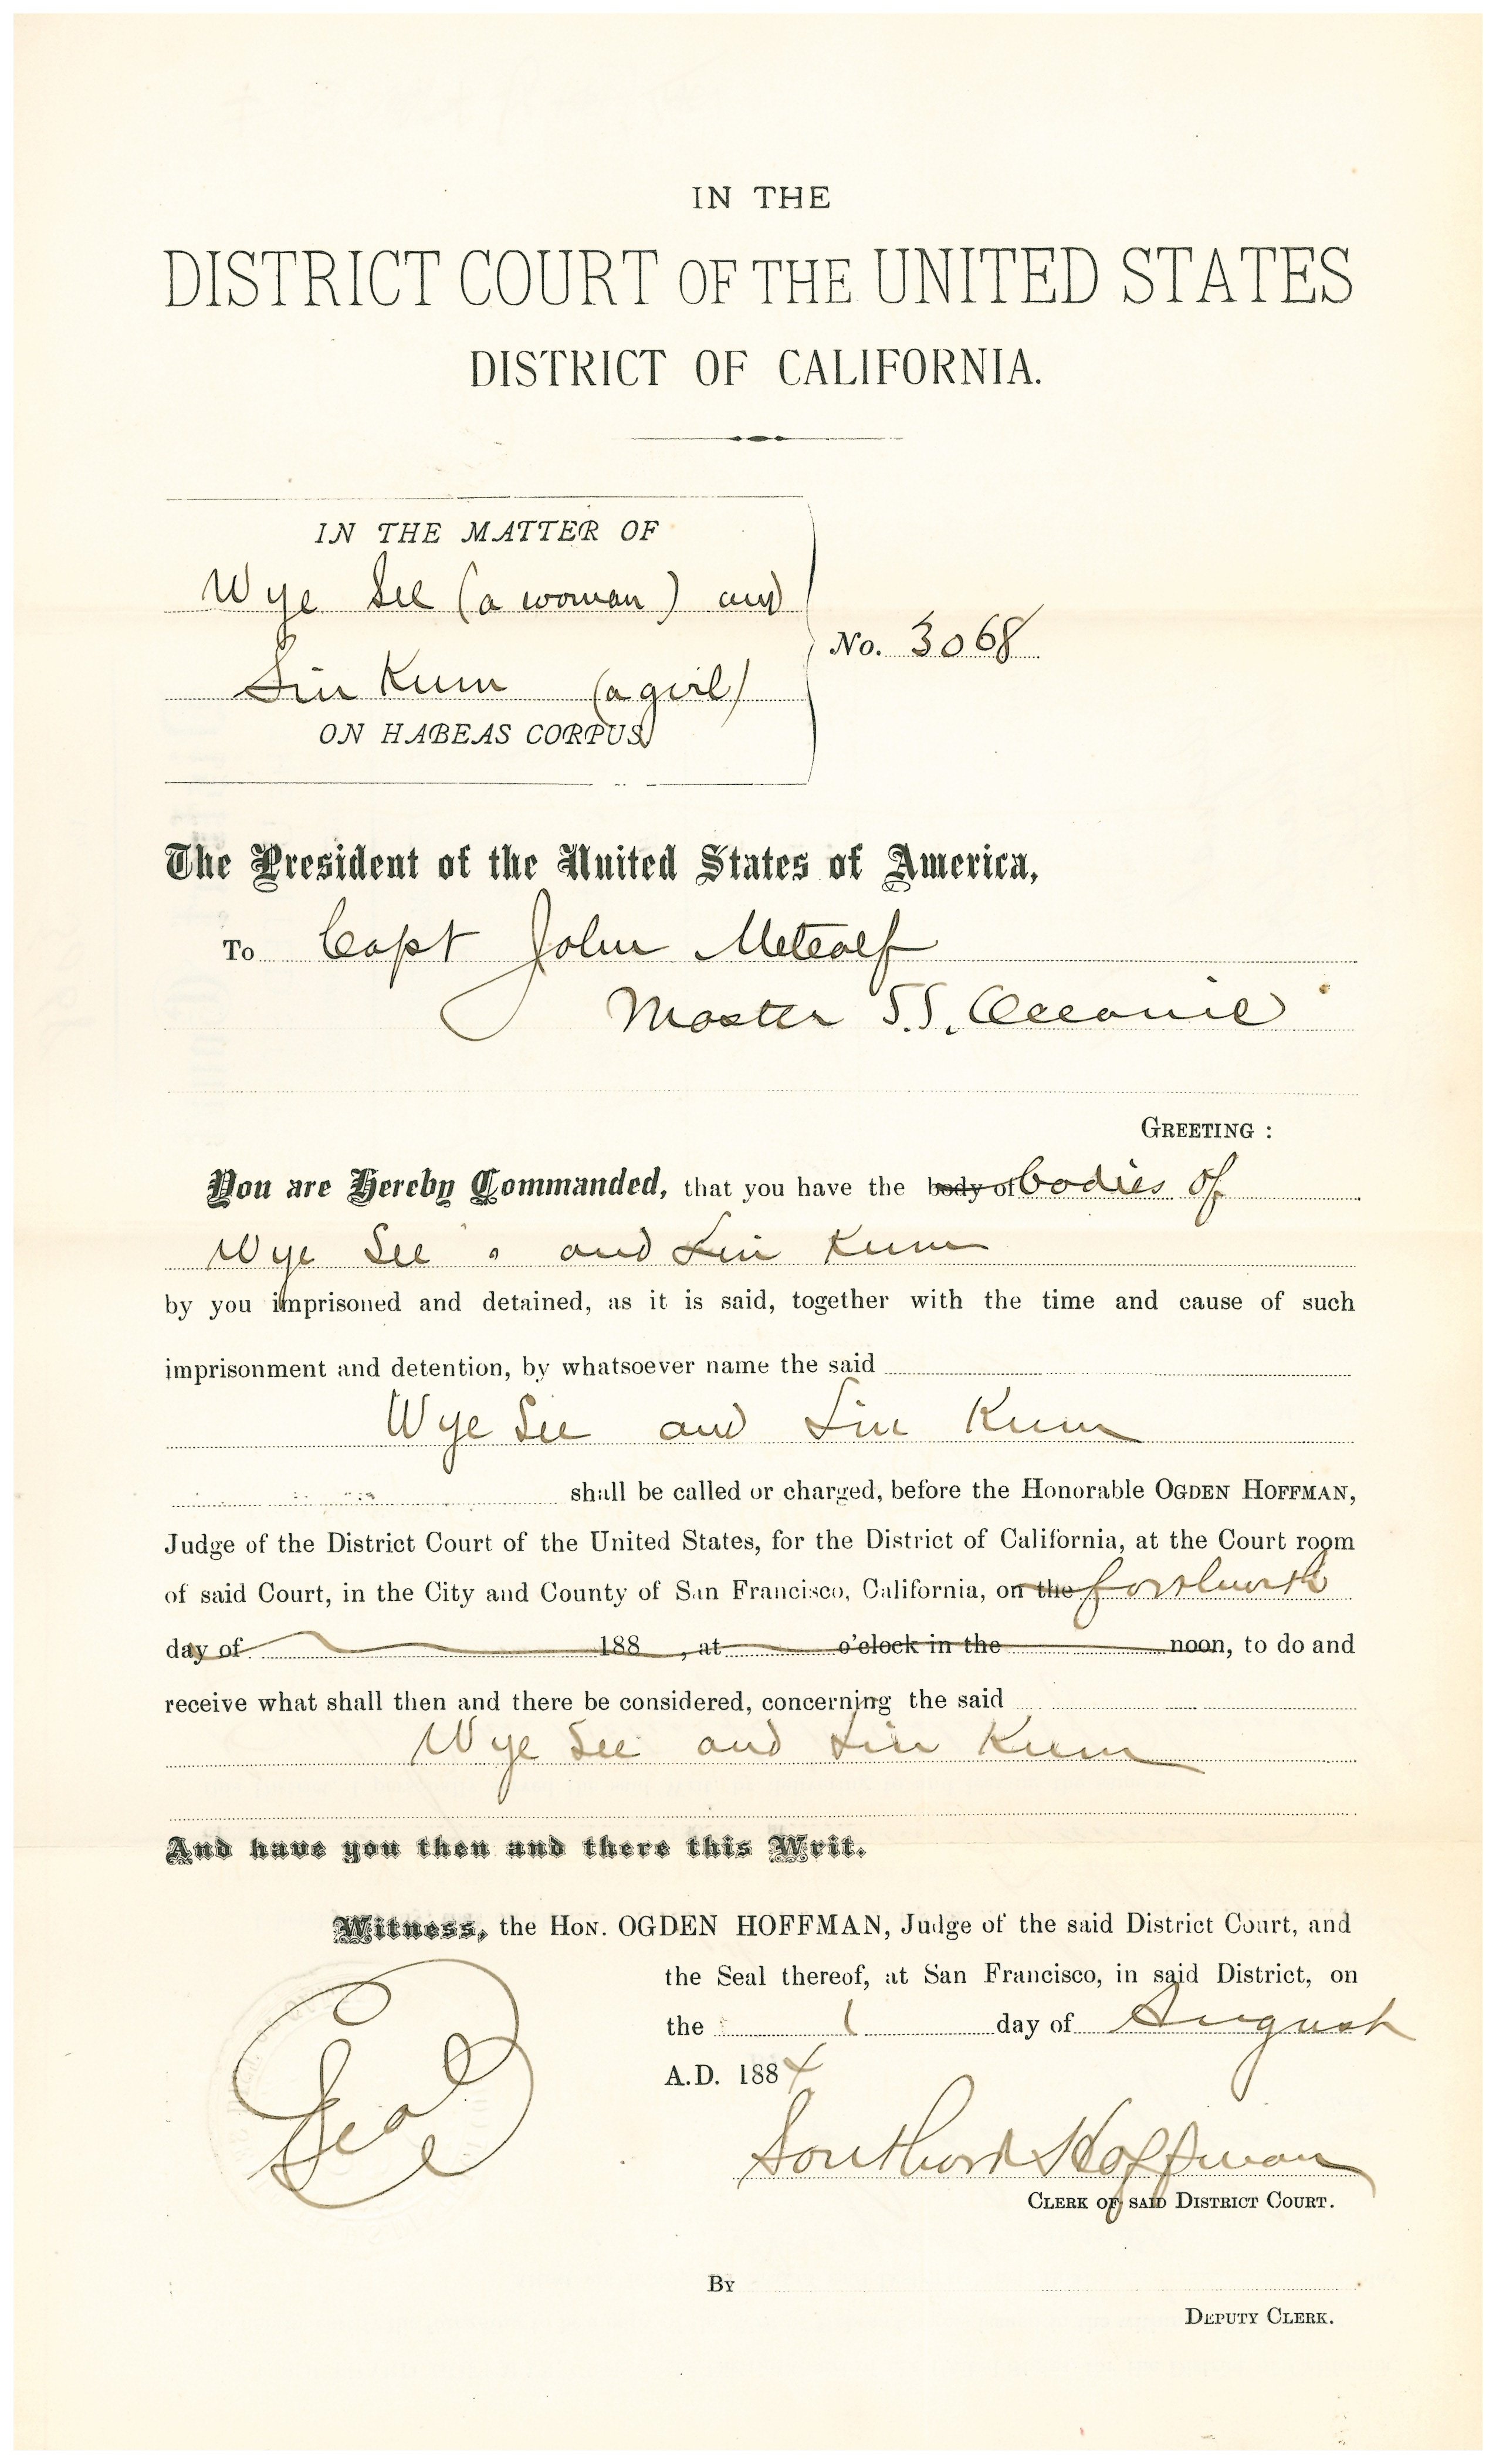 IN THE
DISTRICT COURT OF THE UNITED STATES
DISTRICT OF CALIFORNIA.
IN THE MATTER OF
Wye See (a woman) and
Lin Kum (a girl)
ON HABEAS CORPUS
No. 3068
The President of the United States of America,
To Capt John Metcalf
Master S.S. Oceanic
GREETING :
You are Hereby Commanded, that you have the body of bodies of
Wye See and Lin Kum
by you imprisoned and detained, as it is said, together with the time and cause of such
imprisonment and detention, by whatsoever name the said
Wye See and Lin Kum
shall be called or charged, before the Honorable OGDEN HOFFMAN,
Judge of the District Court of the United States, for the District of California, at the Court room
of said Court, in the City and County of San Francisco, California, on the forthwith
day of 188 , at o'clock in the noon, to do and
receive what shall then and there be considered, concerning the said
Wye See and Lin Kum
And have you then and there this Writ.
Witness, the HON. OGDEN HOFFMAN, Judge of the said District Court, and
the Seal thereof, at San Francisco, in said District, on
the 1 day of August
A.D. 1884
Seal
Southard Hoffman
CLERK OF SAID DISTRICT COURT.
By
DEPUTY CLERK.